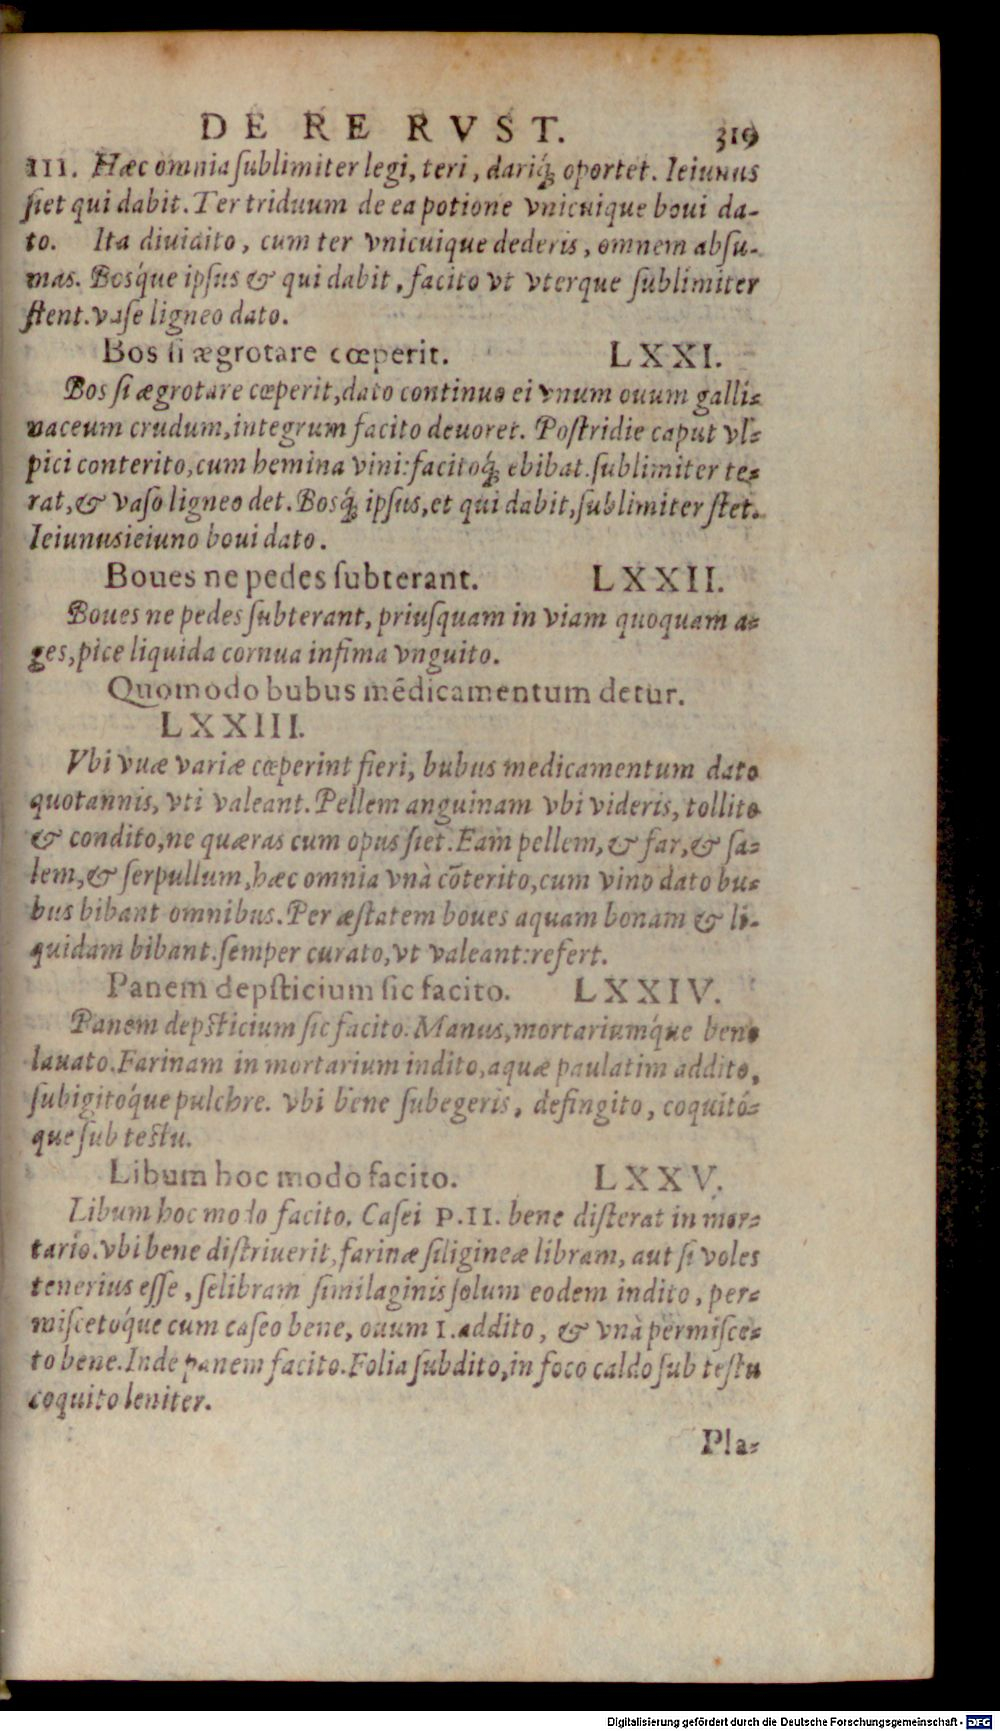 DE RE RVST. 319
III. Hæc omnia ſublimiter legi, teri, dariq́; oportet. Ieiunus
ſiet qui dabit. Ter triduum de ea potione vnicuique boui da-
to. Ita diuidito, cum ter vnicuique dederis, omnem abſu-
mas. Bosq́ue ipſus & qui dabit, facito vt vterque ſublimiter
ſtent. vaſe ligneo dato.
Bos ſi ægrotare cœperit. LXXI.
Bos ſi ægrotare cœperit, dato continuo ei vnum ouum galli-
naceum crudum, integrum facito deuoret. Poſtridie caput vl-
pici conterito, cum hemina vini: facitoq́; ebibat. ſublimiter te-
rat, & vaſo ligneo det. Bosq́; ipſus, et qui dabit, ſublimiter ſtet.
Ieiunus ieiuno boui dato.
Boues ne pedes ſubterant. LXXII.
Boues ne pedes ſubterant, priuſquam in viam quoquam a-
ges, pice liquida cornua infima vnguito.
Quomodo bubus mēdicamentum detur.
LXXIII.
Vbi vuæ variæ cœperint fieri, bubus medicamentum dato
quotannis, vti valeant. Pellem anguinam vbi videris, tollito
& condito, ne quæras cum opus ſiet. Eam pellem, & far, & ſa-
lem, & ſerpullum, hæc omnia vnà cōterito, cum vino dato bu-
bus bibant omnibus. Per æſtatem boues aquam bonam & li-
quidam bibant. ſemper curato, vt valeant: refert.
Panem depſticium ſic facito. LXXIV.
Panem depſticium ſic facito. Manus, mortariumq́ue bene
lauato. Farinam in mortarium indito, aquæ paulatim addito,
ſubigitóque pulchre. vbi bene ſubegeris, defingito, coquitó-
que ſub teſtu.
Libum hoc modo facito. LXXV.
Libum hoc modo facito. Caſei P. II. bene diſterat in mor-
tario. vbi bene diſtriuerit, farinæ ſiligineæ libram, aut ſi voles
tenerius eſſe, ſelibram ſimilaginis ſolum eodem indito, per-
miſcetóque cum caſeo bene, ouum I. addito, & vnà permiſce-
to bene. Inde panem facito. Folia ſubdito, in foco caldo ſub teſtu
coquito leniter.
Pla-
Digitalisierung gefördert durch die Deutsche Forschungsgemeinschaft - DFG